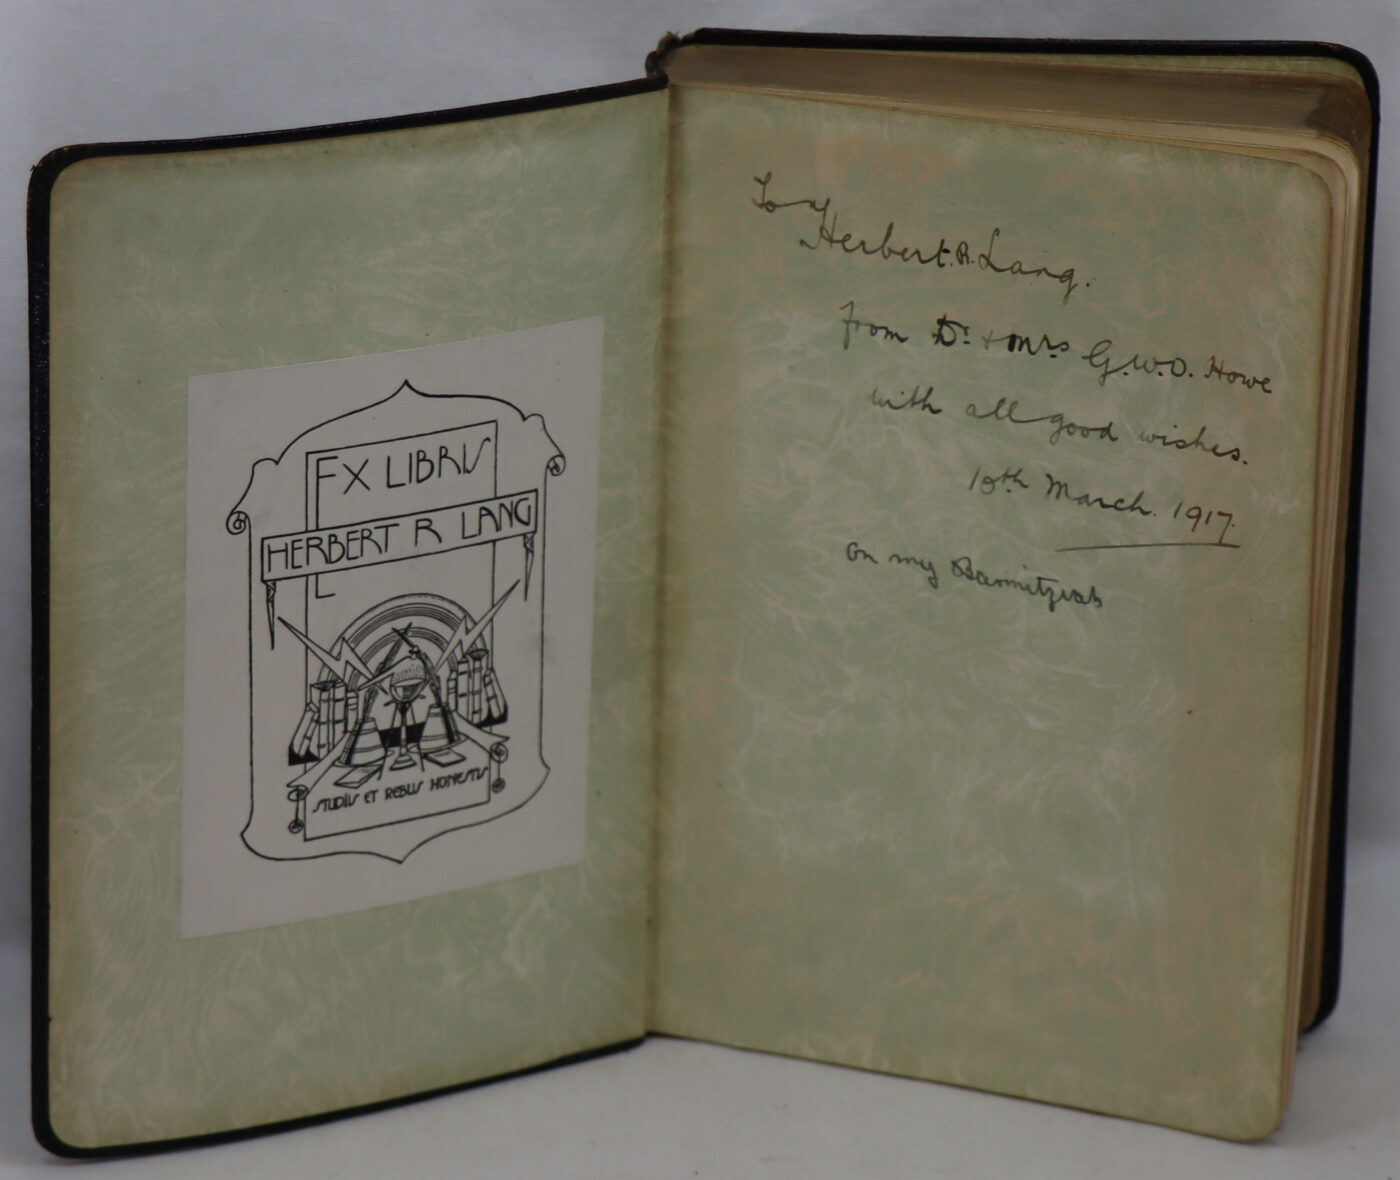 EX LIBRIS
HERBERT R LANG
STUDIIS ET REBUS HONESTIS
To
Herbert. R. Lang.
from Dr. & Mrs G.W.O. Howe
with all good wishes.
10th March. 1917.
on my Barmitzvah